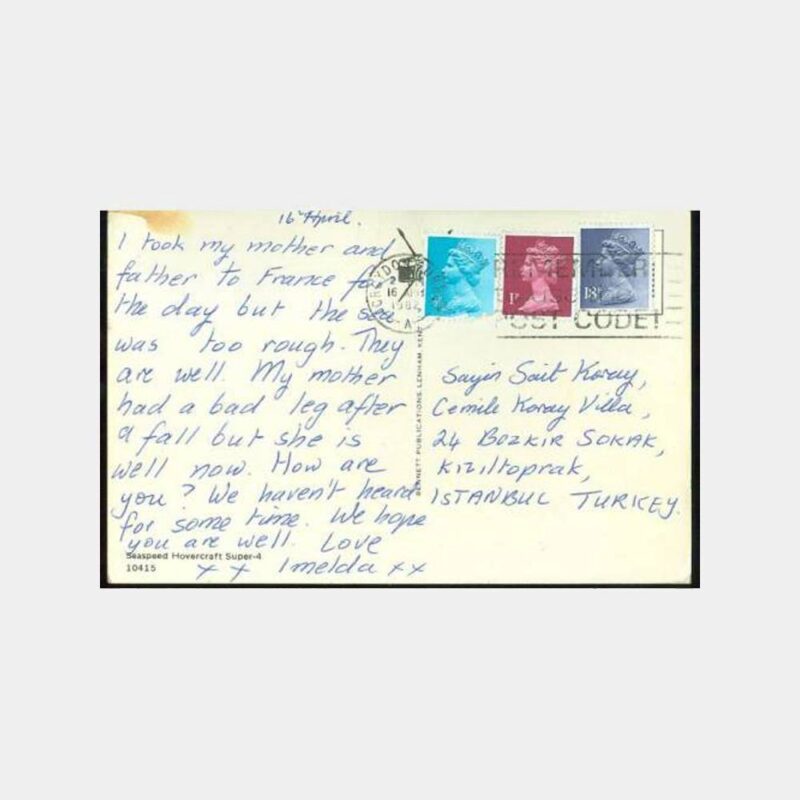 16 April.
I took my mother and
father to France for
the day but the sea
was too rough. They
are well. My mother
had a bad leg after
a fall but she is
well now. How are
you? We haven't heard
for some time. We hope
you are well. Love
x x Imelda x x
Seaspeed Hovercraft Super-4
10415
BENNETT PUBLICATIONS, LENHAM, KENT
CROYDON
16
198
A
1P
REMEMBER
POST CODE!
Sayin Sait Koray,
Cemile Koray Villa,
24 BOZKIR SOKAK,
KIZILTOPRAK,
ISTANBUL TURKEY.